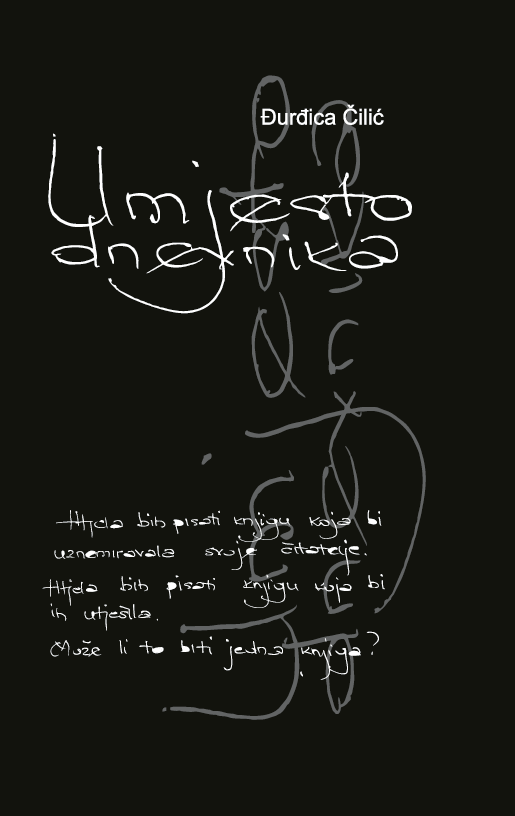 Đurđica Čilić
Umjesto
dnevnika
Htjela bih pisati knjigu koja bi
uznemiravala svoje čitatelje.
Htjela bih pisati knjigu koja bi
ih utješila.
Može li to biti jedna knjiga?